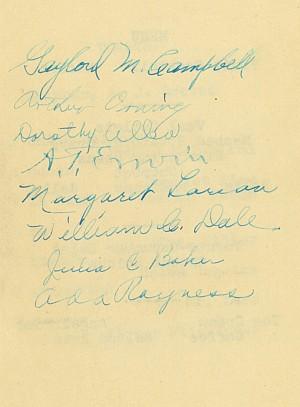 Gaylord M. Campbell
Arthur Corning
Dorothy Allso
A. T. Erwin
Margaret Larson
William C. Dale
Julia C Baker
Ada Rayness